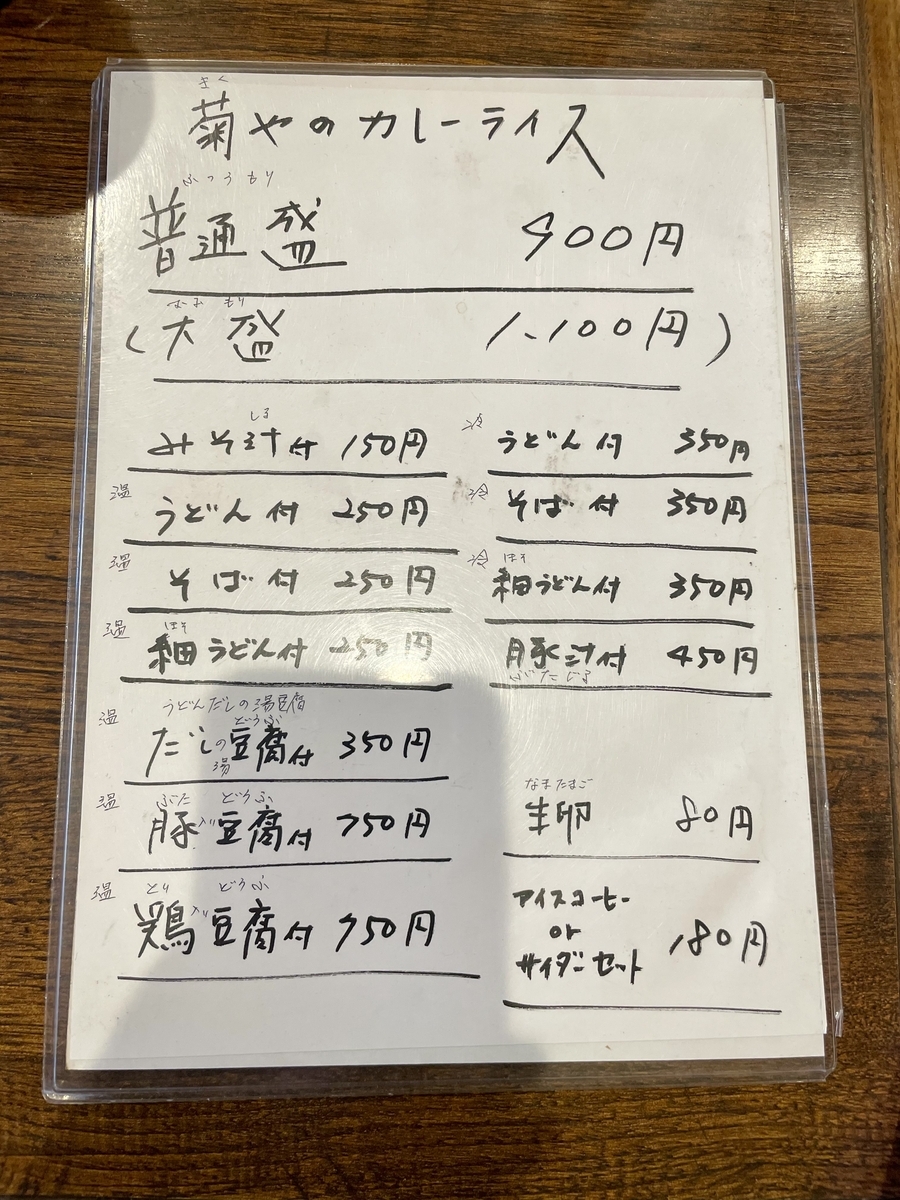 きく
菊やのカレーライス
ふつうもり
普通盛 900円
おおもり
(大盛 1,100円)
しる
みそ汁付 150円
温 うどん付 250円
温 そば付 250円
ほそ
温 細うどん付 250円
うどんだしの湯豆腐
どうふ
温 だしの湯豆腐付 350円
ぶた どうふ
温 豚入り豆腐付 750円
とり どうふ
温 鶏入り豆腐付 750円
冷 うどん付 350円
冷 そば付 350円
ほそ
冷 細うどん付 350円
豚汁付 450円
ぶたじる
なまたまご
生卵 80円
アイスコーヒー
or
サイダーセット 180円